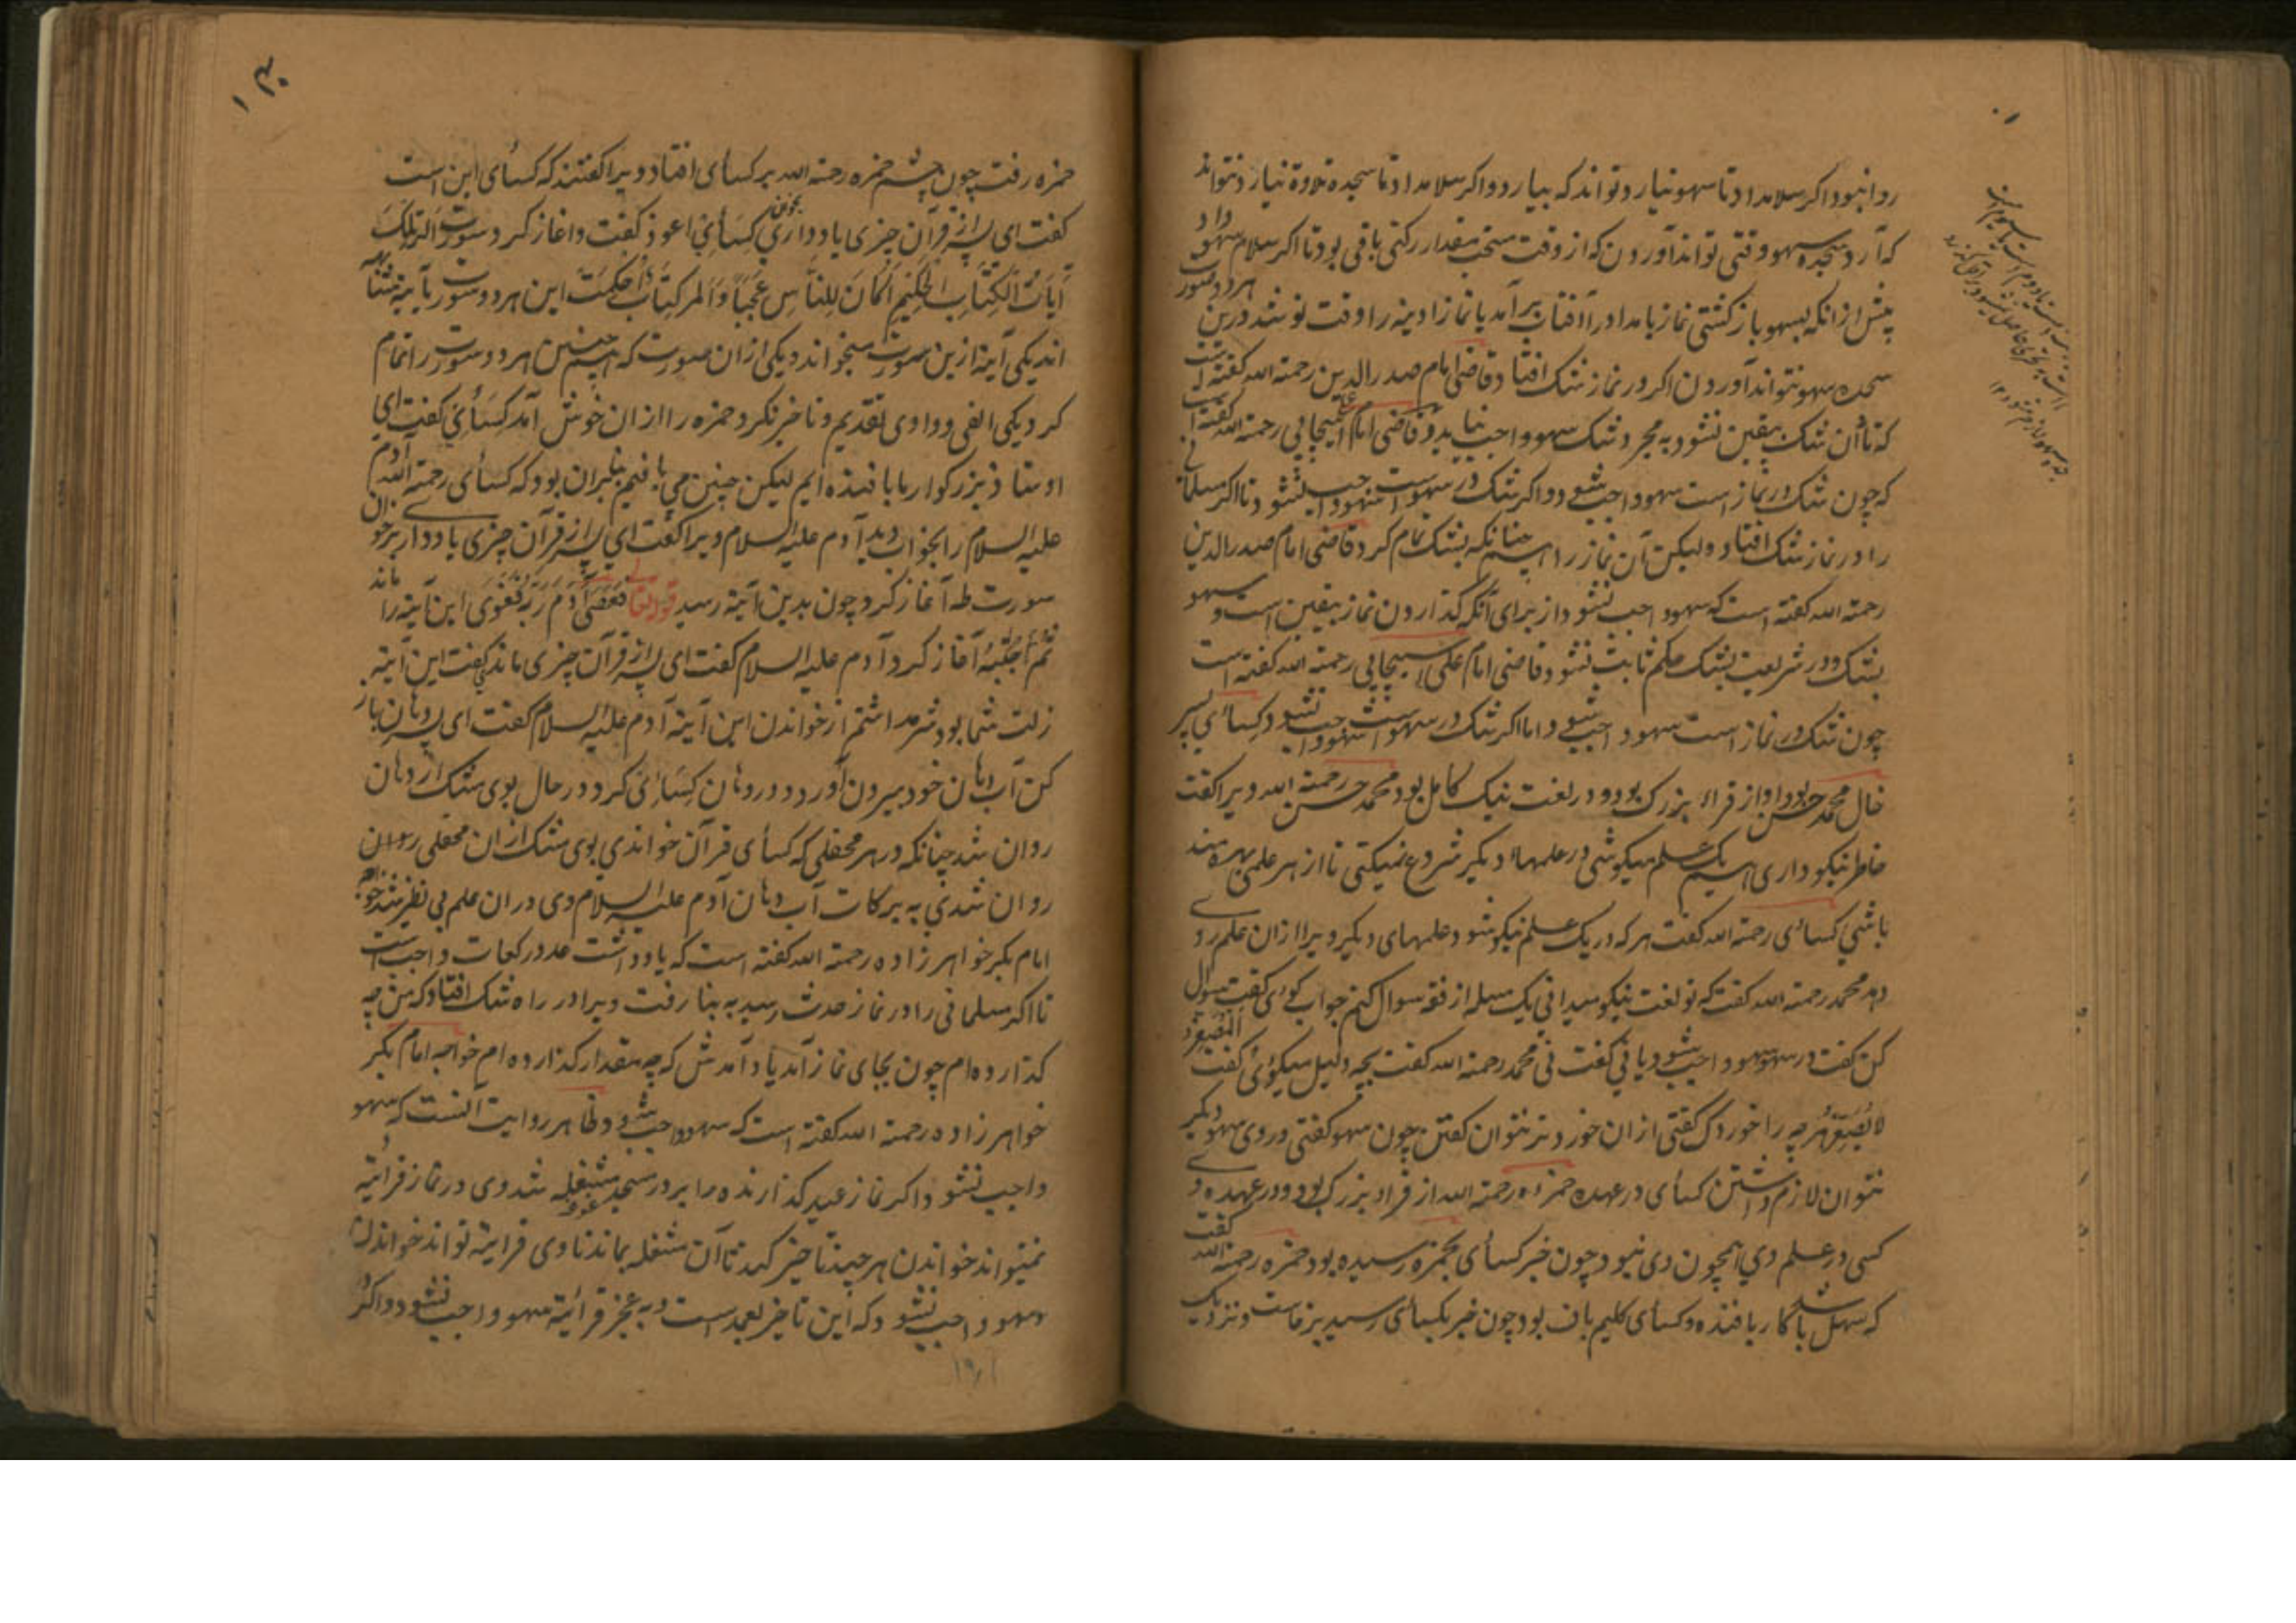 روا نبود اکر سلام داد تا سهو نیارد تواند که بیارد و اکر سلام داد تا سجده تلاوة نیارد نتواند
که آرد سجده سهو وقتی تواند آوردن که از وقت مستحب مقدار رکنی باقی بود تا اکر سلام سهو داد
پیش از آنکه بسهو باز کشتی نماز بامداد را آفتاب برآمد یا نماز آدینه را وقت نو شد درین هر دو صورت
سجده سهو نتواند آوردن اکر در نماز شک افتاد قاضی امام صدر الدین رحمة الله کفته است
که تا آن شک یقین نشود به مجرد شک سهو واجب نیاید و قاضی امام علی اسبیجابی رحمة الله کفته است
که چون شک در نماز است سهو واجب شود و اکر شک در سهو است سهو واجب نشود تا اکر مسلمانی
را در نماز شک افتاد ولیکن آن نماز را همچنانکه بشک تمام کرد قاضی امام صدر الدین
رحمة الله کفته است که سهو واجب نشود از برای آنکه کذاردن نماز بیقین است و سهو
بشک و در شریعت بشک حکم ثابت نشود قاضی امام علی اسبیجابی رحمة الله کفته است
چون شک در نماز است سهو واجب شود و اما اکر شک در سهو است سهو واجب نشود و کسائی پسر
خال محمد حسن بود او از قراء بزرک بود و در لغت نیک کامل بود محمد حسن رحمة الله ویرا کفت
خاطر نیکو داری همین یک علم میکوشی در علمهاء دیکر شروع نمیکنی تا از هر علمی بهره مند
باشی کسائی رحمة الله کفت هر که در یک علم نیکو شود علمهای دیکر ویرا ازان علم رو
دهد محمد رحمة الله کفت که تو لغت نیکو میدانی یک مسله از فقه سوال کنم جواب کوئی کفت سوال
کن کفت در سهو سهو واجب شود یا نی کفت نی محمد رحمة الله کفت بچه دلیل میکوئی کفت المصغر
لا یصغر هر چه را خوردک کفتی ازان خوردتر نتوان کفتن چون سهو کفتی در وی سهو دیکر
نتوان لازم داشتن کسائی در عهده حمزه رحمة الله از قراء بزرک بود و در عهده وی
کسی در علم وی همچون وی نبود چون خبر کسائی بحمزه رسیده بود حمزه رحمة الله کفت
که سهل باشد کار بافنده و کسائی کلیم باف بود چون خبر بکسائی رسید برخاست و نزدیک
حمزه رفت چون چشم حمزه رحمة الله بر کسائی افتاد ویرا کفتند که کسائی این است
کفت ای پسر از قرآن چیزی یاد داری بخوان کسائی اعوذ کفت و اغاز کرد سورت الر تلک
آیات الکتاب الحکیم اکان للناس عجبا و الر کتاب احکمت این هر دو سورت بآیة متشابه
اند یکی آیة ازین سورت میخواند و یکی ازان سورت که همچنین هر دو سورت را تمام
کرد یکی الفی و واوی تقدیم و تاخیر نکرد حمزه را ازان خوش آمد کسائی کفت ای
اوستاذ بزرکوار ما بافنده ایم لیکن چنین می بافیم بنابران بود که کسائی رحمة الله آدم
علیه السلام را بخواب دید آدم علیه السلام ویرا کفت ای پسر از قرآن چیزی یاد داری بر خوان
سورت طه آغاز کرد چون بدین آیة رسید قوله تعالی فعصی آدم ربه فغوی این آیة را ماند
ثم اجتبیه آغاز کرد آدم علیه السلام کفت ای پسر از قرآن چیزی ماند کفت این آیة
زلت شما بود شرم داشتم از خواندن این آیة آدم علیه السلام کفت ای پسر دهان باز
کن آب دهان خود بیرون آورد و در دهان کسائی کرد و در حال بوی مشک از دهان
روان شد چنانکه در هر محفلی که کسائی قرآن خواندی بوی مشک ازان محفلی روان
روان شدی به برکات آب دهان آدم علیه السلام وی دران علم بی نظیر شد خواجه
امام بکر خواهرزاده رحمة الله کفته است که یادداشت عدد رکعات واجب است
تا اکر مسلمانی را در نماز حدث رسید به بنا رفت ویرا در راه شک افتاد که من چه
کذارده ام چون بجای نماز آمد یاد آمدش که چه مقدار کذارده ام خواجه امام بکر
خواهرزاده رحمة الله کفته است که سهو واجب شود و ظاهر روایت آنست که سهو
واجب نشود و اکر نماز عید کذارنده را بر در مسجد مشغله شد وی در نماز قرائة
نمیتواند خواندن هر چند تاخیر کند تا آن مشغله بماند تا وی قرائة تواند خواندن
سهو واجب نشود که این تاخیر بعمد است و به عجز قرائة سهو واجب نشود و اکر
۱۹۱